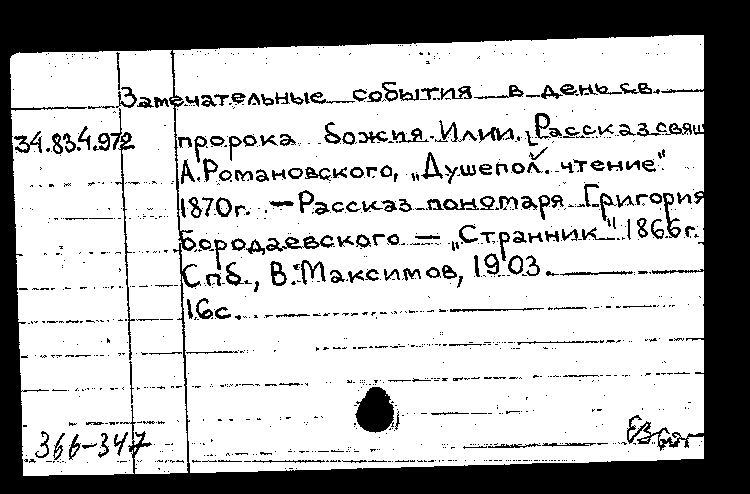 Замечательные события в день св.
34.834.972 пророка божия Илии. [Рассказ свящ
А. Романовского, „Душепол. чтение"
1870г. — Рассказ пономаря Григория
Бородаевского — „Странник" 1866г.
Спб., В. Максимов, 1903.
16с.
366-347